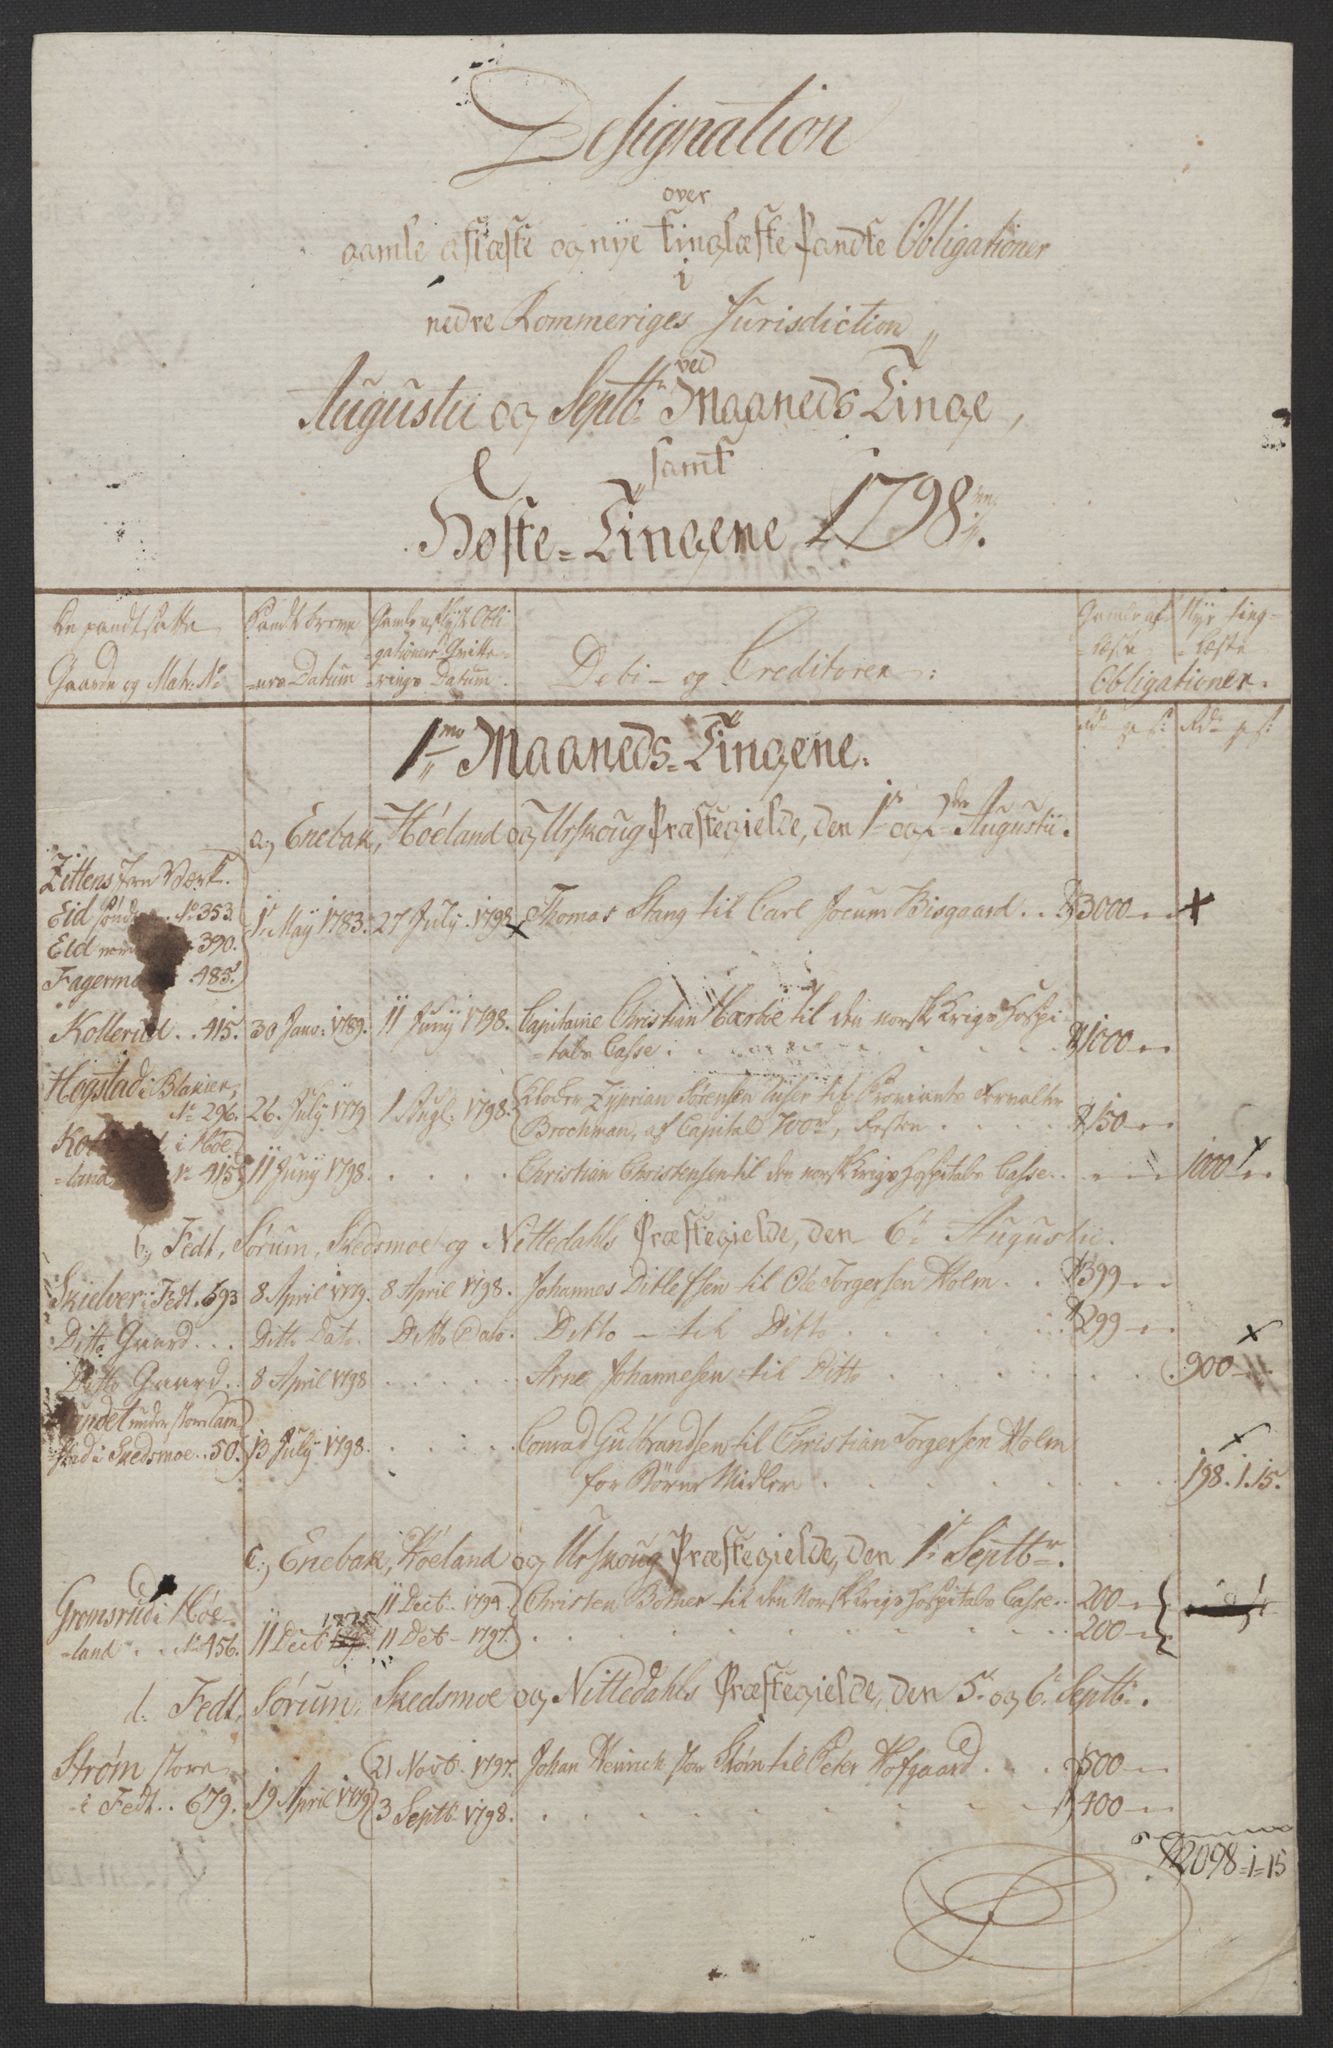 Designation
over
gamle aflæste og nye tinglæste Pandte Obligationer
i
nedre Rommeriges Jurisdiction
ved
Augustii og Septbr Maaneds Tinge,
samt
Høste-Tingene 1798
De pandtsatte
Gaarde og Matr: No
Pandtbreve-
-nes Datum
Gamle aflyst Obli
-gationers Qvitte-
-rings Datum.
Debi- og Creditorer:
Gamle af-
-læste
Nye ting-
-læste
Obligationer.
1mo Maaneds-Tingene.
Rdr Rdr
a, Enebak, Høeland og Urskoug Præstegielde, den 1t og 2den Augustii.
Zittens Jern Værk.
Eid søndre No 353.
Eid 390.
483.
1t Maÿ 1783. 27 Julÿ. 1798 Thomas Stang til Carl Jocum Bisgaard . . 3000
Kollerud . . 415. 30 Janv: 1789. 11 Junÿ 1798. Capitaine Christian til den norske Krigs Hospi-
-tals Casse . 1000
Hogstad i Blakier,
No 296. 26 Julÿ 1779 1 Augl. 1798. Zyprian Sørensen til Proviants Forvalter
Brochman, af Capital 700rd, Resten . . . . 150
i Høe
-land No 415 11 Junÿ 1798. . . . . Christian Christensen til den norske Krigs Hospitals Casse . . 1000
b, Fedt, Sørum, Skedsmoe og Nittedahls Præstegielde, den 6t Augustii.
Skielver i Fedt. 693 8 April 1779. 8 April 1798. Johannes Ditlefsen til Ole Torgersen Holm . . 399
Ditto Gaard . . . Ditto Dato. Ditto Dato. Ditto - til Ditto . . . . 299
Ditto Gaard . . 8 April 1798 . . . . . Arne Johannesen til Ditto . . . . 900
under store Lam
-stad i Skedsmoe . . 50. 13 Julÿ 1798. . . . . Conrad Gulbrandsen til Christian Torgersen Holm
for Børne Midler . . . . 198. 1. 15.
c, Enebak, Høeland og Urskoug Præstegielde, den 1t Septbr.
Gromsrud i Høe-
-land . . No 456. 11 Decb 1775 11 Decb - 1794 Christen Børner til den Norske Krigs Hospitals Casse . . 200
11 Dcb - 1797. . . . . 200
d. Fedt, Sørum, Skedsmoe og Nittedahls Præstegielde, den 5t og 6t Septbr.
Strøm store
i Fedt . . 679. 19 April 1779 21 Novb - 1797. Johan Henrich store Strøm til Peter Hofgaard . . . 500
3 Septb - 1798. . . . . 400
2098-1-15